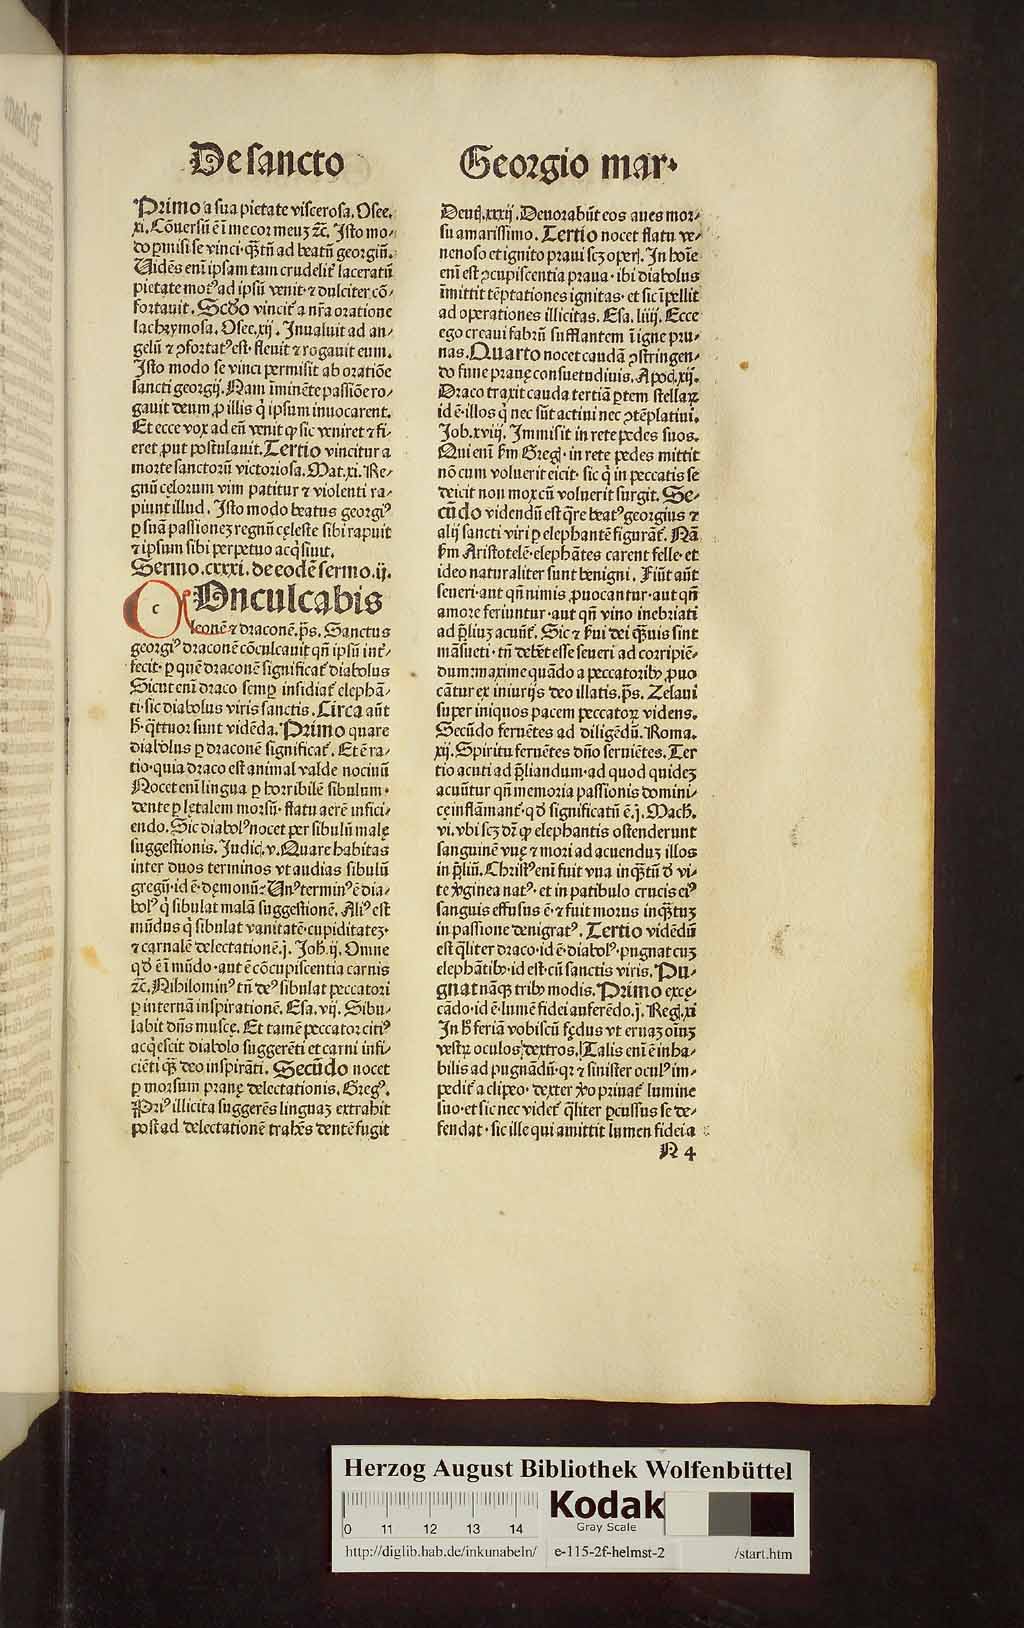 De sancto
Primo a sua pietate viscerosa. Osee.
xi. Cõuersũ ẽ ĩ me cor meuȝ ⁊c̃. Isto mo⸗
do ꝑmisi se vinci. qñtũ ad beatũ georgiũ.
Uidẽs enĩ ipsam tam crudelit᷑ laceratũ
pietate motꝰ ad ipsũ venit. ⁊ dulciter cõ⸗
fortauit. Scd̃o vincit᷑ a nr̃a oratione
lachrymosa. Osee. xij. Inualuit ad an⸗
gelũ ⁊ ꝯfortatꝰ est. fleuit ⁊ rogauit eum.
Isto modo se vinci permisit ab oratiõe
sancti georgij. Nam ĩminẽte passiõe ro⸗
gauit deum ꝓ illis q̇ ipsum inuocarent.
Et ecce vox ad eũ venit ꝙ sic veniret ⁊ fi⸗
eret ꝓut postulauit. Tertio vincitur a
morte sanctorũ victoriosa. Mat. xi. Re⸗
gnũ cęlorum vim patitur ⁊ violenti ra⸗
piunt illud. Isto modo beatus georgiꝰ
ꝑ suã passioneȝ regnũ cęleste sibi rapuit
⁊ ipsum sibi perpetuo acq̇siuit.
Sermo. cxxxi. de eodẽ sermo. ij.
c Onculcabis
leonẽ ⁊ draconẽ. p̃s. Sanctus
georgiꝰ draconẽ cõculcauit qñ ipsũ int᷑⸗
fecit. ꝑ quẽ draconẽ significat᷑ diabolus
Sicut enĩ draco semꝑ insidiat᷑ elephã⸗
ti. sic diabolus viris sanctis. Circa aũt
h̃. q̃ttuor sunt vidẽda. Primo quare
diabolus ꝑ draconẽ significat᷑. Et ẽ ra⸗
tio. quia draco est animal valde nociuũ
Nocet enĩ lingua ꝑ horribilẽ sibulum.
dente ꝑ lętalem morsũ. flatu aerẽ infici⸗
endo. Sic diabolꝰ nocet per sibulũ malę
suggestionis. Judic̃. v. Quare habitas
inter duos terminos vt audias sibulũ
gregũ. id ẽ. dęmonũ: Unꝰ terminꝰ ẽ dia⸗
bolꝰ q̇ sibulat malã suggestionẽ. Aliꝰ est
mũdus q̇ sibulat vanitatẽ. cupiditateȝ.
⁊ carnalẽ delectationẽ. j. Joh̃. ij. Omne
qd̃ ẽ ĩ mũdo. aut ẽ cõcupiscentia carnis
⁊c̃. Nihilominꝰ tñ deꝰ sibulat peccatori
ꝑ internã inspirationẽ. Esa. vij. Sibu⸗
labit dñs musce. Et tamẽ peccator citiꝰ
acq̇escit diabolo suggerẽti et carni infi⸗
ciẽti q̃ȝ deo inspirãti. Secũdo nocet
ꝑ morsum prauę delectationis. Gregꝰ.
Priꝰ illicita suggerẽs linguaȝ extrahit
post ad delectationẽ trahẽs dentẽ fugit
Georgio mar.
Deut̃. xxxij. Deuorabũt eos aues mor⸗
su amarissimo. Tertio nocet flatu ve⸗
nenoso et ignito praui scȝ oper̃. In hoĩe
enĩ est ꝯcupiscentia praua. ibi diabolus
ĩmittit tẽptationes ignitas. et sic ĩpellit
ad operationes illicitas. Esa. liiij. Ecce
ego creaui fabrũ sufflantem ĩ igne pru⸗
nas. Quarto nocet caudã ꝯstringen⸗
do fune prauę consuetudinis. Apoc̃. xij.
Draco traxit cauda tertiã ꝑtem stellaꝝ
id ẽ. illos q̇ nec sũt actiui nec ꝯtẽplatiui.
Job. xviij. Immisit in rete pedes suos.
Qui enĩ ẜm Greg̃. in rete pedes mittit
nõ cum voluerit eicit. sic q̇ in peccatis se
deicit non mox cũ voluerit surgit. Se⸗
cũdo videndũ est q̃re beatꝰ georgius ⁊
alij sancti viri ꝑ elephantẽ figurãt᷑. Nã
ẜm Aristotelẽ. elephãtes carent felle. et
ideo naturaliter sunt benigni. Fiũt aũt
seueri. aut qñ nimis ꝓuocantur. aut qñ
amore feriuntur. aut qñ vino inebriati
ad p̃liuȝ acuũt᷑. Sic ⁊ ẜui dei q̃uis sint
mãsueti. tñ debẽt esse seueri ad corripiẽ⸗
dum: maxime quãdo a peccatoribꝰ ꝓuo
cãtur ex iniurijs deo illatis. p̃s. Zelaui
super iniquos pacem peccatoꝝ videns.
Secũdo feruẽtes ad diligẽdũ. Roma.
xij. Spiritu feruẽtes dño seruiẽtes. Ter
tio acuti ad p̃liandum. ad quod quideȝ
acuũtur qñ memoria passionis domini⸗
cę inflãmant᷑. qd̃ significatũ ẽ. j. Mach̃.
vi. vbi scȝ dr̃ ꝙ elephantis ostenderunt
sanguinẽ vuę ⁊ mori ad acuenduȝ illos
in p̃liũ. Christꝰ enĩ fuit vua inq̃tũ d̃ vi⸗
te ṽginea natꝰ. et in patibulo crucis eiꝰ
sanguis effusus ẽ. ⁊ fuit morus inq̃tuȝ
in passione denigratꝰ. Tertio vidẽdũ
est q̃liter draco. id ẽ. diabolꝰ. pugnat cuȝ
elephãtibꝰ. id est. cũ sanctis viris. Pu⸗
gnat nãqȝ tribꝰ modis. Primo excę⸗
cãdo. id ẽ. lumẽ fidei auferẽdo. j. Reg̃. xi
In h̃ feriã vobiscũ fędus vt eruaȝ oĩuȝ
vestꝝ oculos dextros. Talis enĩ ẽ inha⸗
bilis ad pugnãdũ. qꝛ ⁊ sinister oculꝰ im⸗
pedit᷑ a clipeo. dexter ṽo priuat᷑ lumine
suo. et sic nec videt᷑ q̃liter ꝑcussus se de⸗
fendat. sic ille qui amittit lumen fidei a
N 4
Herzog August Bibliothek Wolfenbüttel
Kodak
Gray Scale
0 11 12 13 14
http://diglib.hab.de/inkunabeln/ e-115-2f-helmst-2 /start.htm